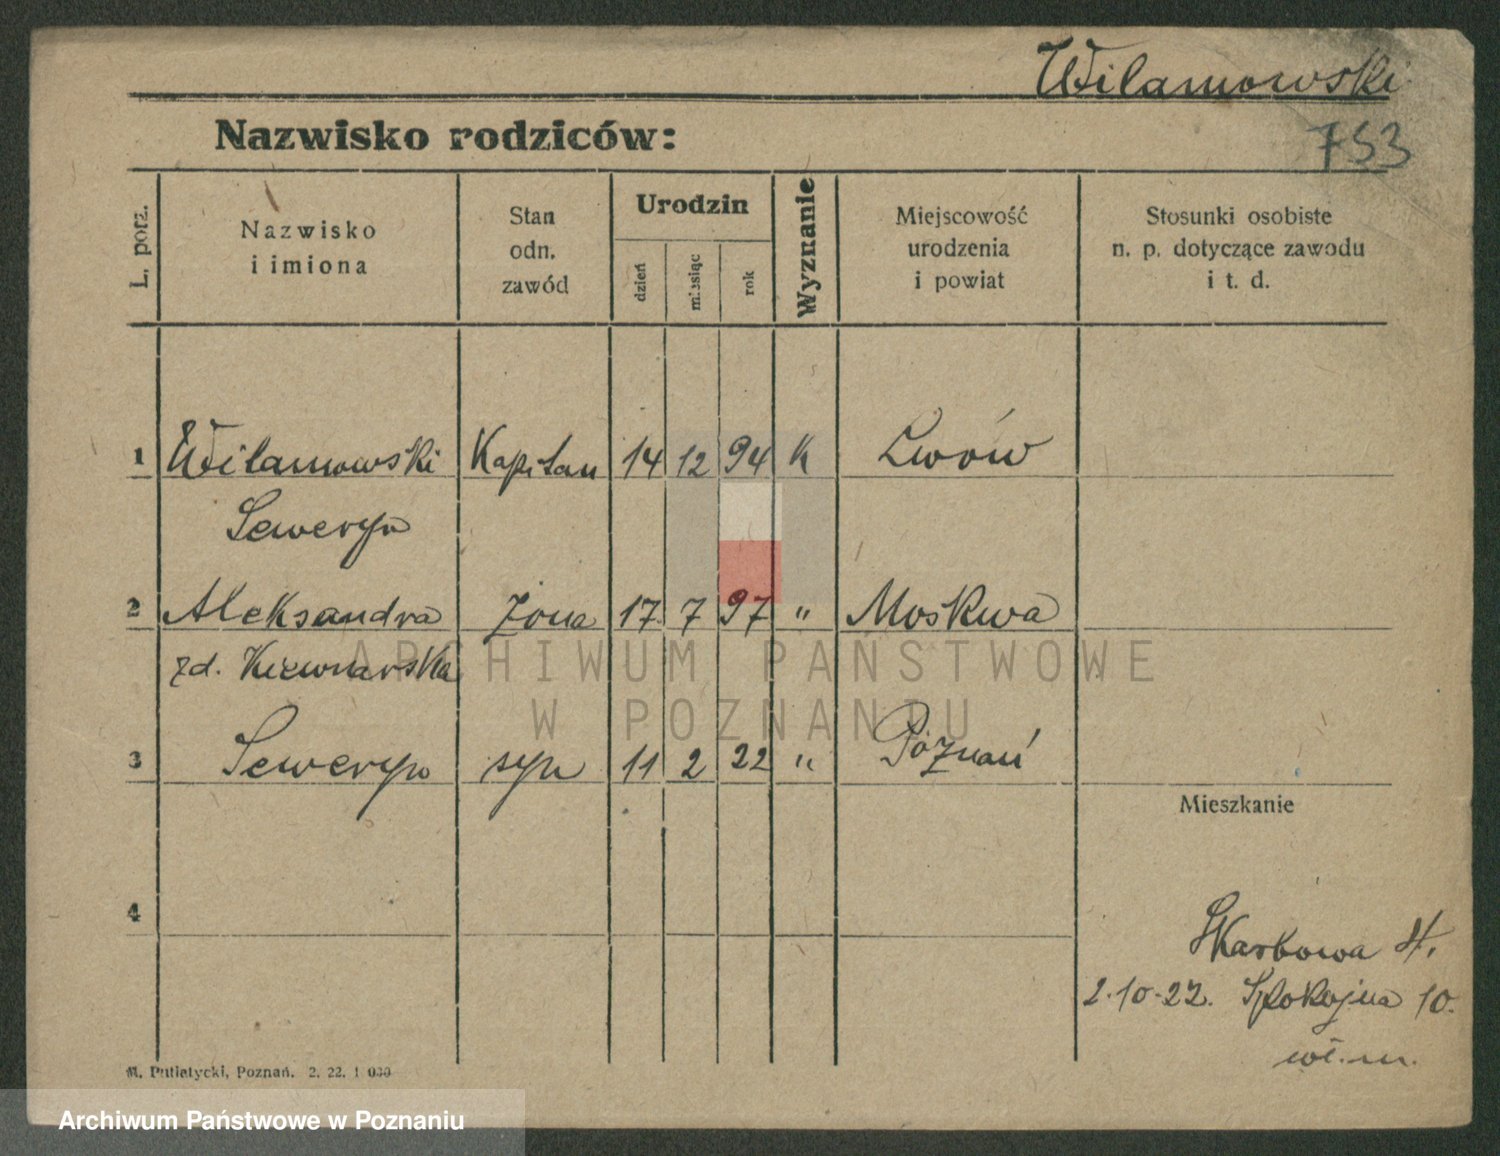 Wilamowski
753
Nazwisko rodziców:
L. porz.
Nazwisko
i imiona
Stan
odn.
zawód
Urodzin
dzień
miesiąc
rok
Wyznanie
Miejscowość
urodzenia
i powiat
Stosunki osobiste
n. p. dotyczące zawodu
i t. d.
1 Wilamowski Kapitan 14 12 94 K Lwów
Seweryn
2 Aleksandra żona 17. 7 97 " Moskwa
zd.
3 Seweryn syn 11 2 22 " Poznań
Mieszkanie
4
Skarbowa
2.10.22. Spokojna 10.
wł. m.
M. Putiatycki, Poznań. 2. 22. 1 000
ARCHIWUM PAŃSTWOWE
W POZNANIU
Archiwum Państwowe w Poznaniu